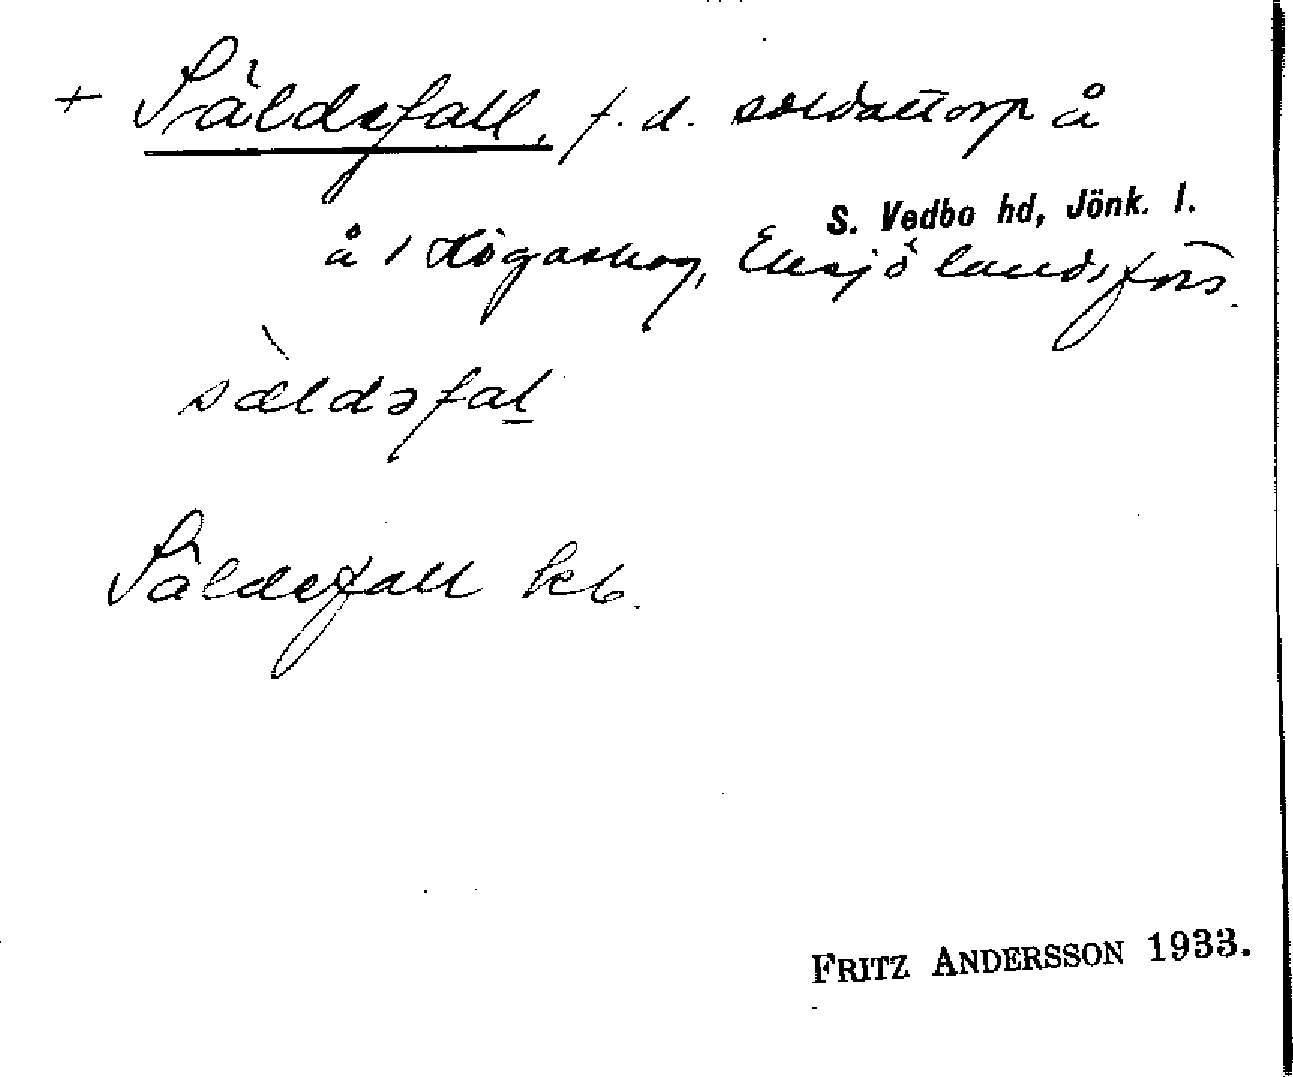 + Säldefall, f. d. soldattorp å
S. Vedbo hd, Jönk. l.
å 1 Högaskog, Eksjö landsförs.
sæ̀ldəfaḷ
Säldefall kb.
FRITZ ANDERSSON 1933.